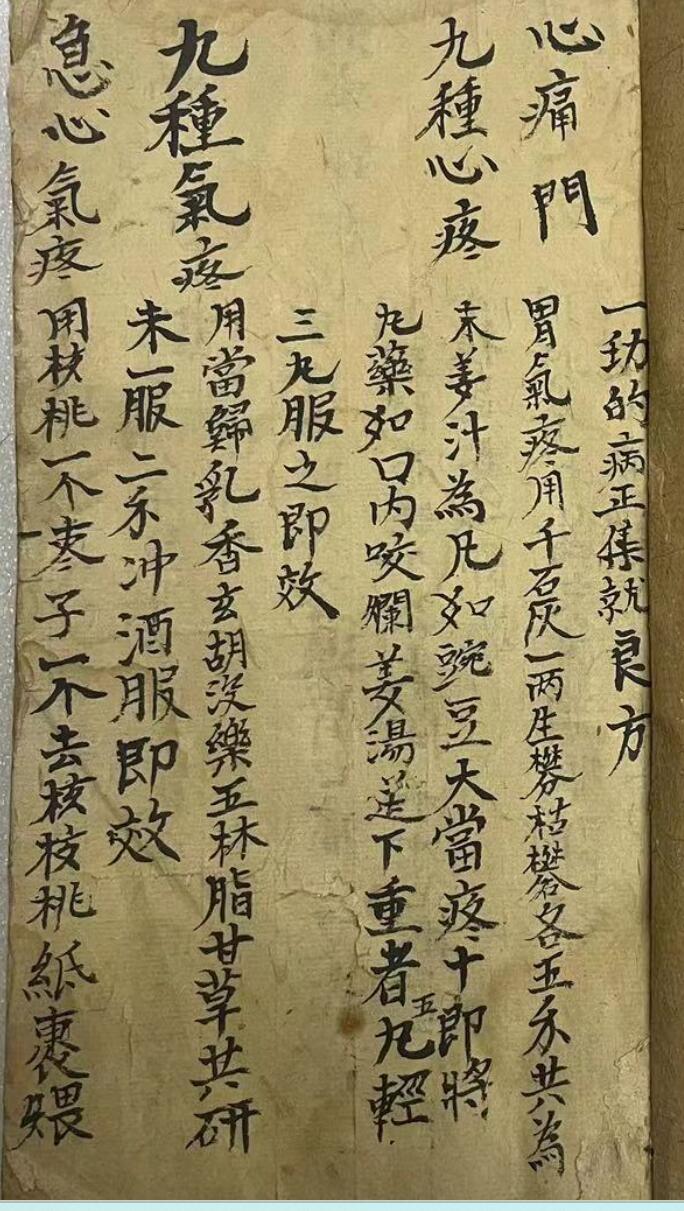 一切的病症集就良方
心痛門
胃氣疼用千石灰一两生礬枯礬各五禾共為
九種心疼
末姜汁為凡如豌豆大當疼十即將
九藥如口内咬爛姜湯送下重者五九輕
三九服之即效
九種氣疼
用當歸乳香玄胡没藥五林脂甘草共研
未一服二禾冲酒服即效
急心氣疼
用核桃一个枣子一个去核核桃紙裹煨